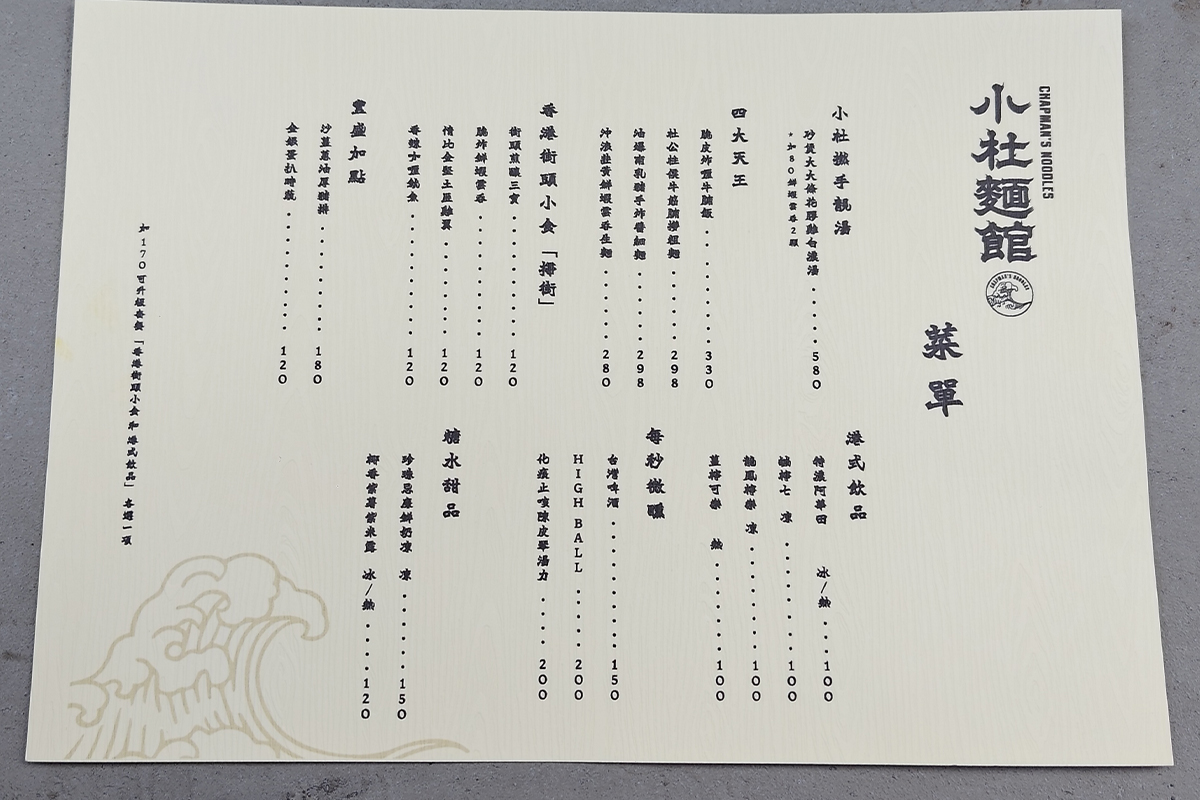 小杜麵館
CHAPMAN'S NOODLES
CHAPMAN'S NOODLES
菜單
小杜撫手靚湯
砂煲大大條花膠雞白濃湯······580
*加80鮮蝦雲吞2顆
四大天王
脆皮炸喱牛腩飯·········330
杜公柱侯牛筋腩撈粗麵·······298
油爆南乳豬手炸醬細麵·······298
沖浪韭黃鮮蝦雲吞生麵·······280
香港街頭小食「掃街」
街頭煎釀三寶···········120
脆炸鮮蝦雲吞···········120
憎比金堅土匪雞翼·········120
香辣咖喱魷魚···········120
豐盛加點
沙薑蔥油厚豬排··········180
金銀蛋扒時蔬···········120
加170可升級套餐「香港街頭小食和港式飲品」各選一項
港式飲品
特濃阿華田 冰/熱····100
鹹檸七 凍·········100
龍鳳檸樂 凍·········100
薑檸可樂 熱········100
每秒微醺
台灣啤酒··········150
HIGH BALL·····200
化痰止咳陳皮翠湯力·····200
糖水甜品
珍珠忌廉鮮奶凍 凍······150
椰香紫薯紫米露 冰/熱····120